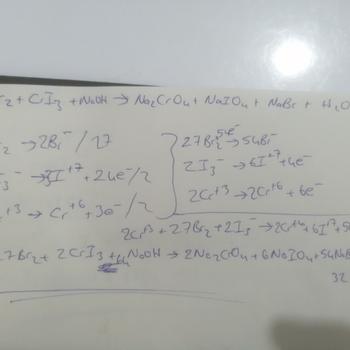 r2 + CrI3 + NaOH → Na2CrO4 + NaIO4 + NaBr + H2O
r2 → 2Br⁻ / 27
I3⁻ → 3I⁺⁷ + 24e⁻ / 2
r⁺³ → Cr⁺⁶ + 3e⁻ / 2
27Br2 54e⁻→ 54Br⁻
2I3⁻ → 6I⁺⁷ + 4e⁻
2Cr⁺³ → 2Cr⁺⁶ + 6e⁻
2Cr⁺³ + 27Br2 + 2I3⁻ → 2Cr⁺⁶ + 6I⁺⁷ + 5
27Br2 + 2CrI3 + 64 NaOH → 2Na2CrO4 + 6NaIO4 + 54NaB
32